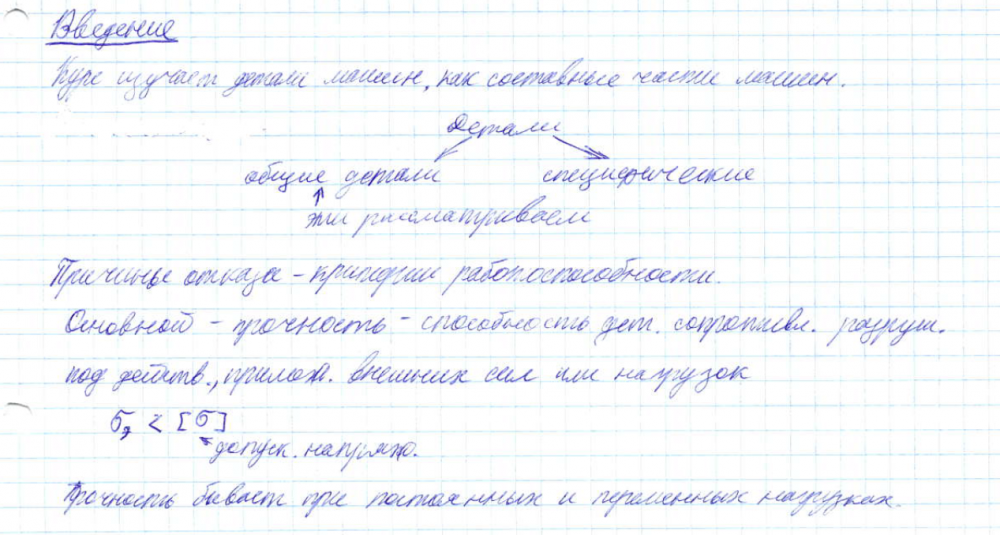 Введение
Курс изучает детали машин, как составные части машин.
Детали
общие детали специфические
эти рассматриваем
Причины отказа - критерии работоспособности.
Основной - прочность - способность дет. сопротивл. разруш.
под действ., прилож. внешних сил или нагрузок
σэ < [σ]
допуск. напряж.
Прочность бывает при постоянных и переменных нагрузках.